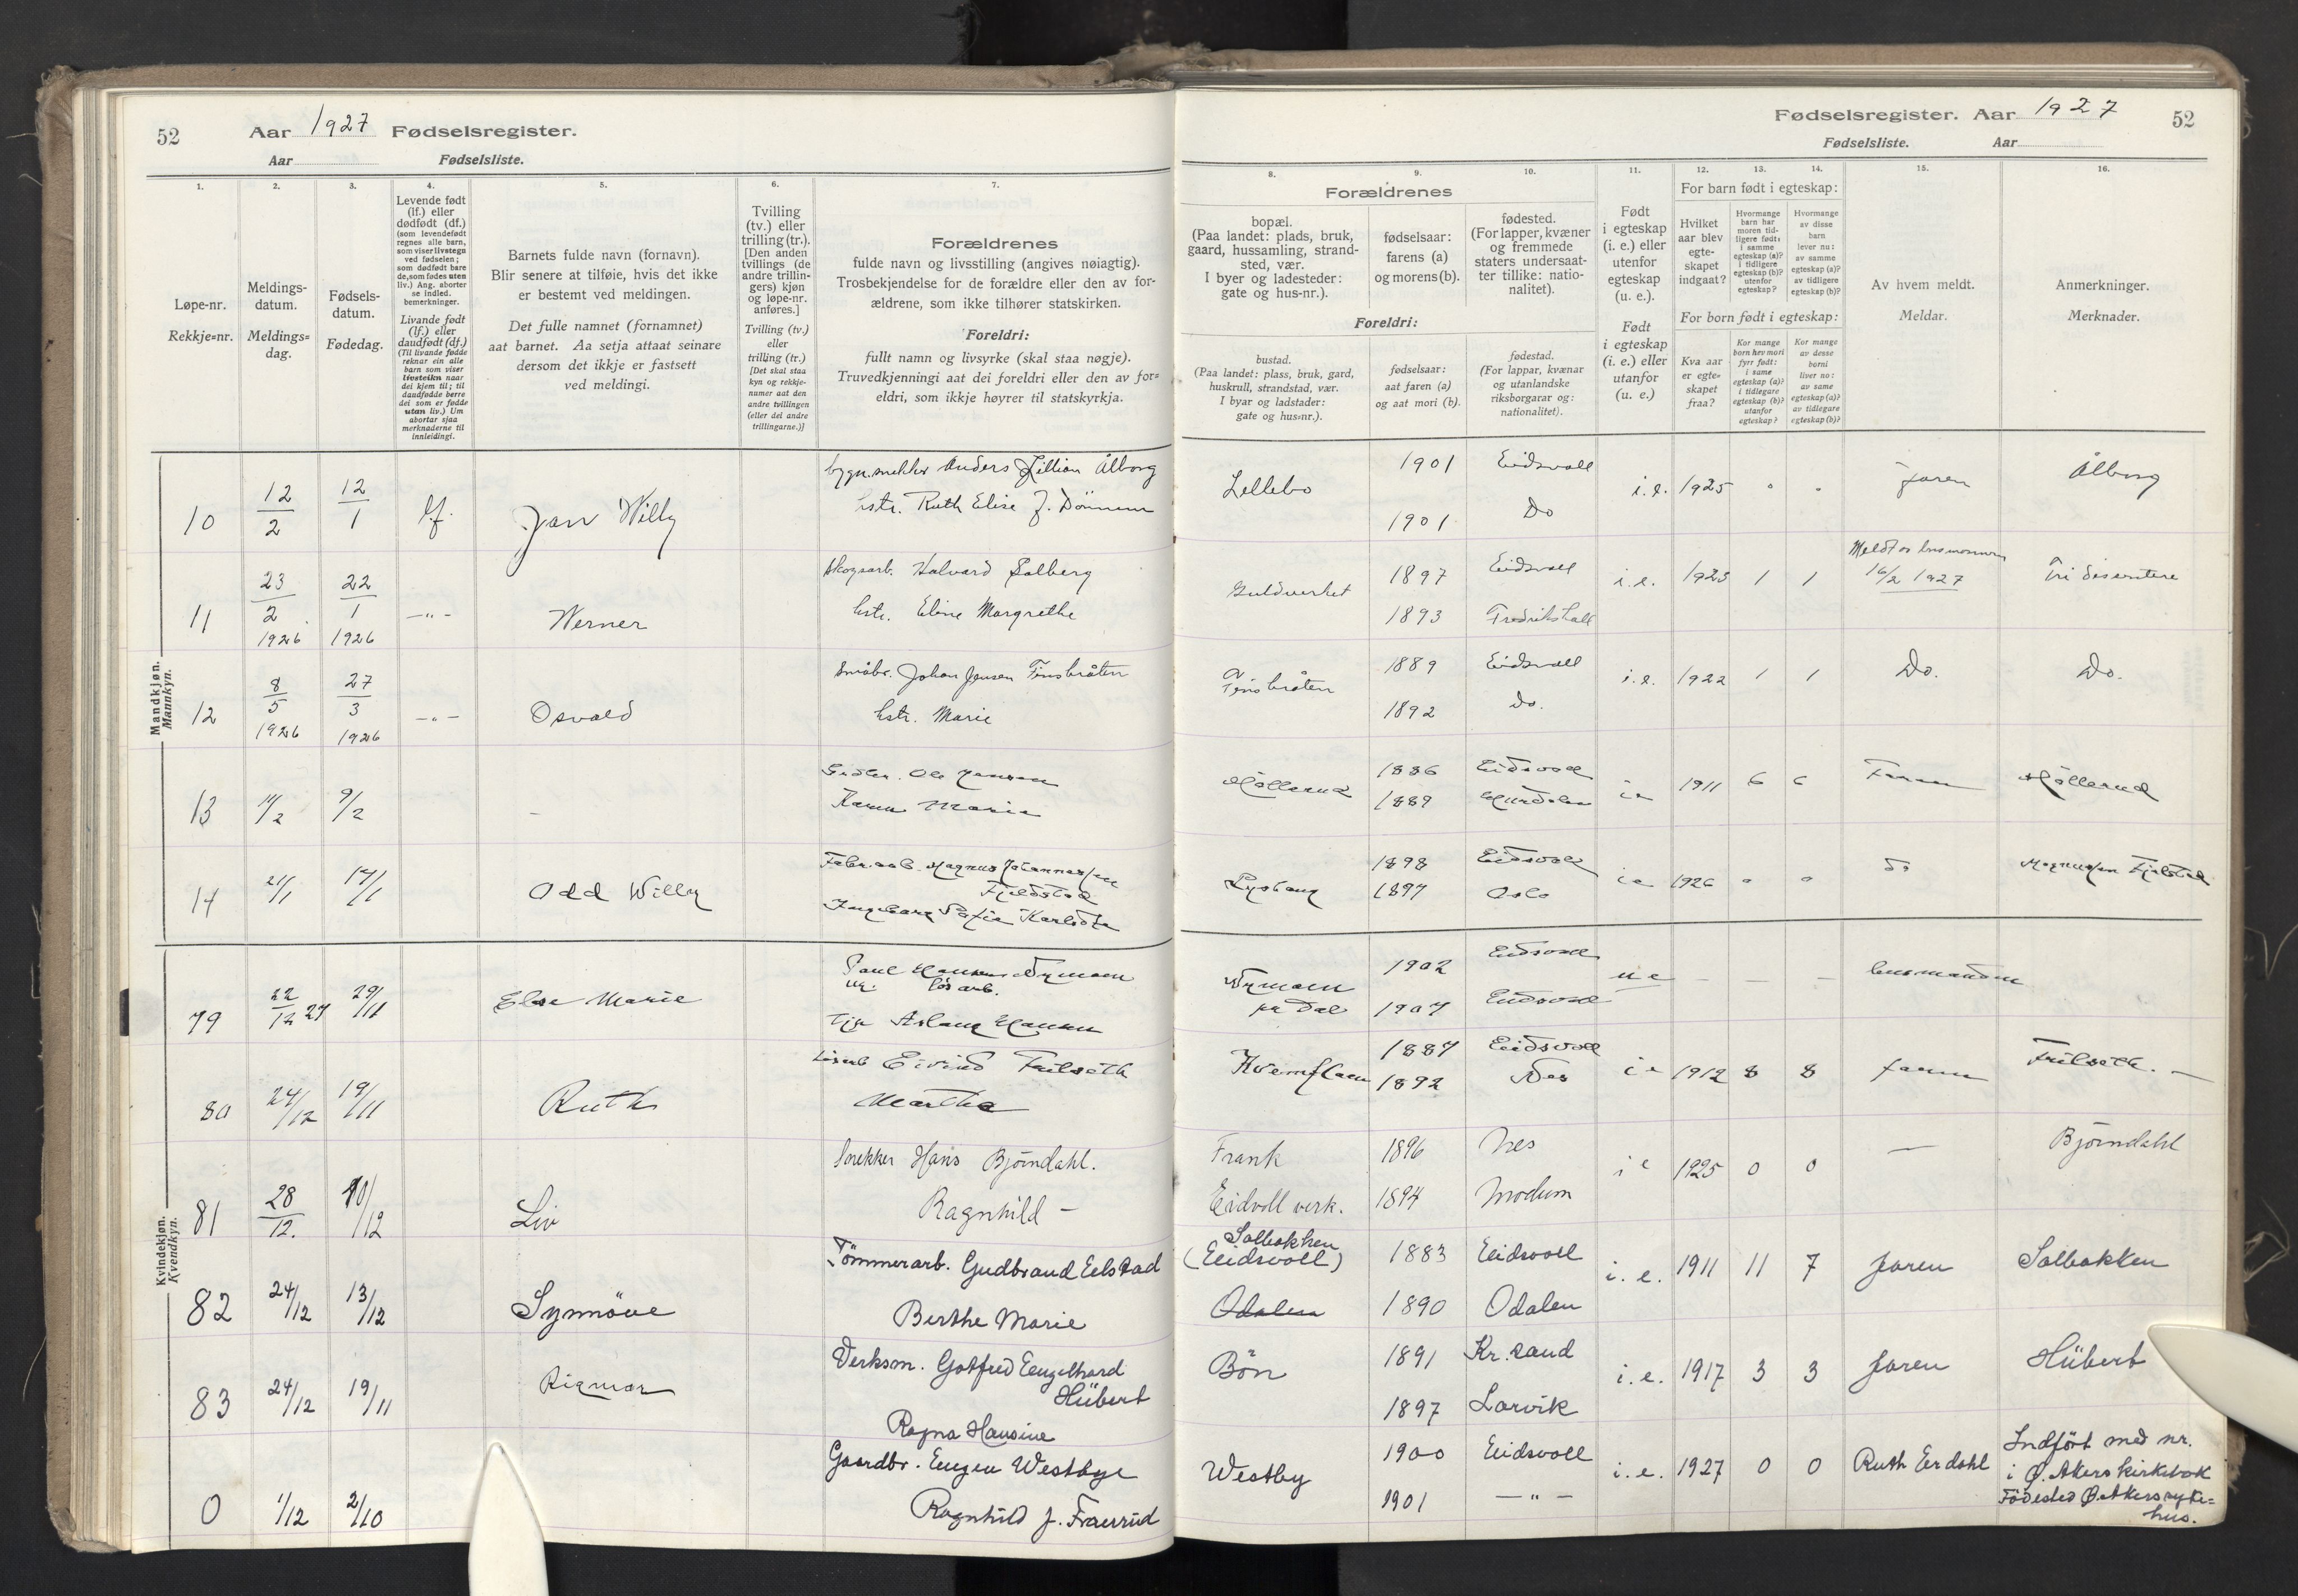 52
Aar 1927 Fødselsregister.
Aar Fødselsliste.
1. 2. 3. 4. 5. 6. 7.
Løpe-nr.
Rekkje-nr.
Meldings-
datum.
Meldings-
dag.
Fødsels-
datum.
Fødedag.
Levende født
(lf.) eller
dødfødt (df.)
(som levendefødt
regnes alle barn,
som viser livstegn
ved fødselen;
som dødfødt bare
de, som fødes uten
liv.) Ang. aborter
se indled.
bemerkninger.
Livande født
(lf.) eller
daudfødt (df.)
(Til livande fødde
reknar ein alle
barn som viser
livsteikn naar
dei kjem til; til
daudfødde berre
dei som er fødde
utan liv.) Um
abortar sjaa
merknaderne til
innleidingi.
Barnets fulde navn (fornavn).
Blir senere at tilføie, hvis det ikke
er bestemt ved meldingen.
Det fulle namnet (fornamnet)
aat barnet. Aa setja attaat seinare
dersom det ikkje er fastsett
ved meldingi.
Tvilling
(tv.) eller
trilling (tr.).
[Den anden
tvillings (de
andre trillin-
gers) kjøn
og løpe-nr.
anføres.]
Tvilling (tv.)
eller
trilling (tr.)
[Det skal staa
kyn og rekkje-
numer aat den
andre tvillingen
(eller dei andre
trillingarne.)]
Forældrenes
fulde navn og livsstilling (angives nøiagtig).
Trosbekjendelse for de forældre eller den av for-
ældrene, som ikke tilhører statskirken.
Foreldri:
fullt namn og livsyrke (skal staa nøgje).
Truvedkjenningi aat dei foreldri eller den av for-
eldri, som ikkje høyrer til statskyrkja.
Mandkjøn.
Mannkyn.
10 12/2 12/1 lf. Jan Willy
Anders Ålborg
hstr. Ruth Elise J.
11 23/2 1926 22/1 1926 —"— Werner
Skogsarb. Halvard Solberg
hstr. Eline Margrethe
12 8/5 1926 27/3 1926 —"— Osvald
Småbr. Johan Jensen Finsbråten
hstr. Marie
13 9/2 —
Ole Hansen
Karen Marie
14 21/1 17/1 Odd Willy
Fabr.arb. Magnus Johannessen
Fjeldstad
Ingeborg Sofie
Kvindekjøn.
Kvendkyn.
79 22/12 27 29/11 Else Marie
Paul Hansen Nymoen
løsarb.
Aslaug Hansen
80 24/12 19/11 Ruth
Løsarb Eivind Frilseth
Martha
81 28/12. 10/12 Liv
Snekker Hans Bjørndahl.
Ragnhild —
82 24/12 13/12 Synnöve
Tömmerarb. Gudbrand Eelstad
Berthe Marie
83 24/12 19/11 Rigmor
Verksm. Gotfred Eengelhard
Hübert
Ragna Hansine
0 1/12 2/10
Gaardbr. Eugen Westbye
Ragnhild J. Fraerrud
Fødselsregister. Aar 1927 52
Fødselsliste. Aar
8. 9. 10. 11. 12. 13. 14. 15. 16.
Forældrenes
bopæl.
(Paa landet: plads, bruk,
gaard, hussamling, strand-
sted, vær.
I byer og ladesteder:
gate og hus-nr.).
fødselsaar:
farens (a)
og morens (b).
fødested.
(For lapper, kvæner
og fremmede
staters undersaat-
ter tillike: natio-
nalitet).
Foreldri:
bustad.
(Paa landet: plass, bruk, gard,
huskrull, strandstad, vær.
I byar og ladstader:
gate og hus-nr.).
fødselsaar:
aat faren (a)
og aat mori (b).
fødestad.
(For lappar, kvænar
og utanlandske
riksborgarar og:
nationalitet).
Født
i egteskap
(i. e.) eller
utenfor
egteskap
(u. e.).
Født
i egteskap
(i. e.) eller
utanfor
(u. e.)
For barn født i egteskap:
Hvilket
aar blev
egte-
skapet
indgaat?
Hvormange
barn har
moren tid-
ligere født:
i samme
egteskap (a)?
i tidligere
egteskap (b)?
utenfor
egteskap?
Hvormange
av disse
barn
lever nu:
av samme
egteskap (a)?
av tidligere
egteskap (b)?
For born født i egteskap:
Kva aar
er egte-
skapet
fraa?
Kor mange
born hev mori
fyrr født:
i same
egteskap (a)?
i tidlegare
egteskap (b)?
utanfor
egteskap?
Kor mange
av desse
borni
liver no:
av same
egteskap (a)?
av tidlegare
egteskap (b)?
Av hvem meldt.
Meldar.
Anmerkninger.
Merknader.
Lellebo 1901 Eidsvoll i.e. 1925 0 0 faren Ålborg
1901 Do
Guldverket 1897 Eidsvoll i.e. 1925 1 1 Meldt
16/2 1927
1893 Fredrikshald
Finsbråten 1889 Eidsvoll i.e. 1922 1 1 Do. Do.
1892 Do.
Møllerud 1886 Eidsvoll ie 1911 6 6 Faren Møllerud
1889 Hurdalen
1898 Eidsvoll ie 1926 0 0 do Magnussen Fjelstad
1897 Oslo
Nymoen 1902 Eidsvoll ue — — —
pr Dal 1907 Eidsvoll
1887 Eidsvoll ie 1912 8 8 faren Frilseth. —
1892 Nes
Frank 1896 Nes ie 1925 0 0 — Bjørndahl
Eidvoll verk. 1894 Modum
Solbakken
(Eeidsvoll) 1883 Eeidsvoll i.e. 1911 11 7 faren Solbakken
Odalen 1890 Odalen
Bön 1891 Kr.sand i.e. 1917 3 3 faren Hübert
1897 Larvik
Westby 1900 Eeidsvoll i.e. 1927 0 0 Ruth Eerdahl Indført med nr.
i Ø. Akers kirkebok
1901 —"— Fødested Ø. Akers syke=
hus.